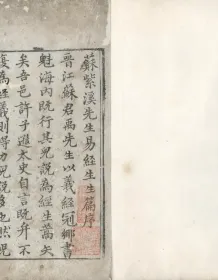 蘇紫溪先生易經生生篇序
晉江蘇君禹先生以羲經冠鄉書
魁海內既行其兒說為經生蒿矢
矣吾邑許子遜太史自言既弁不